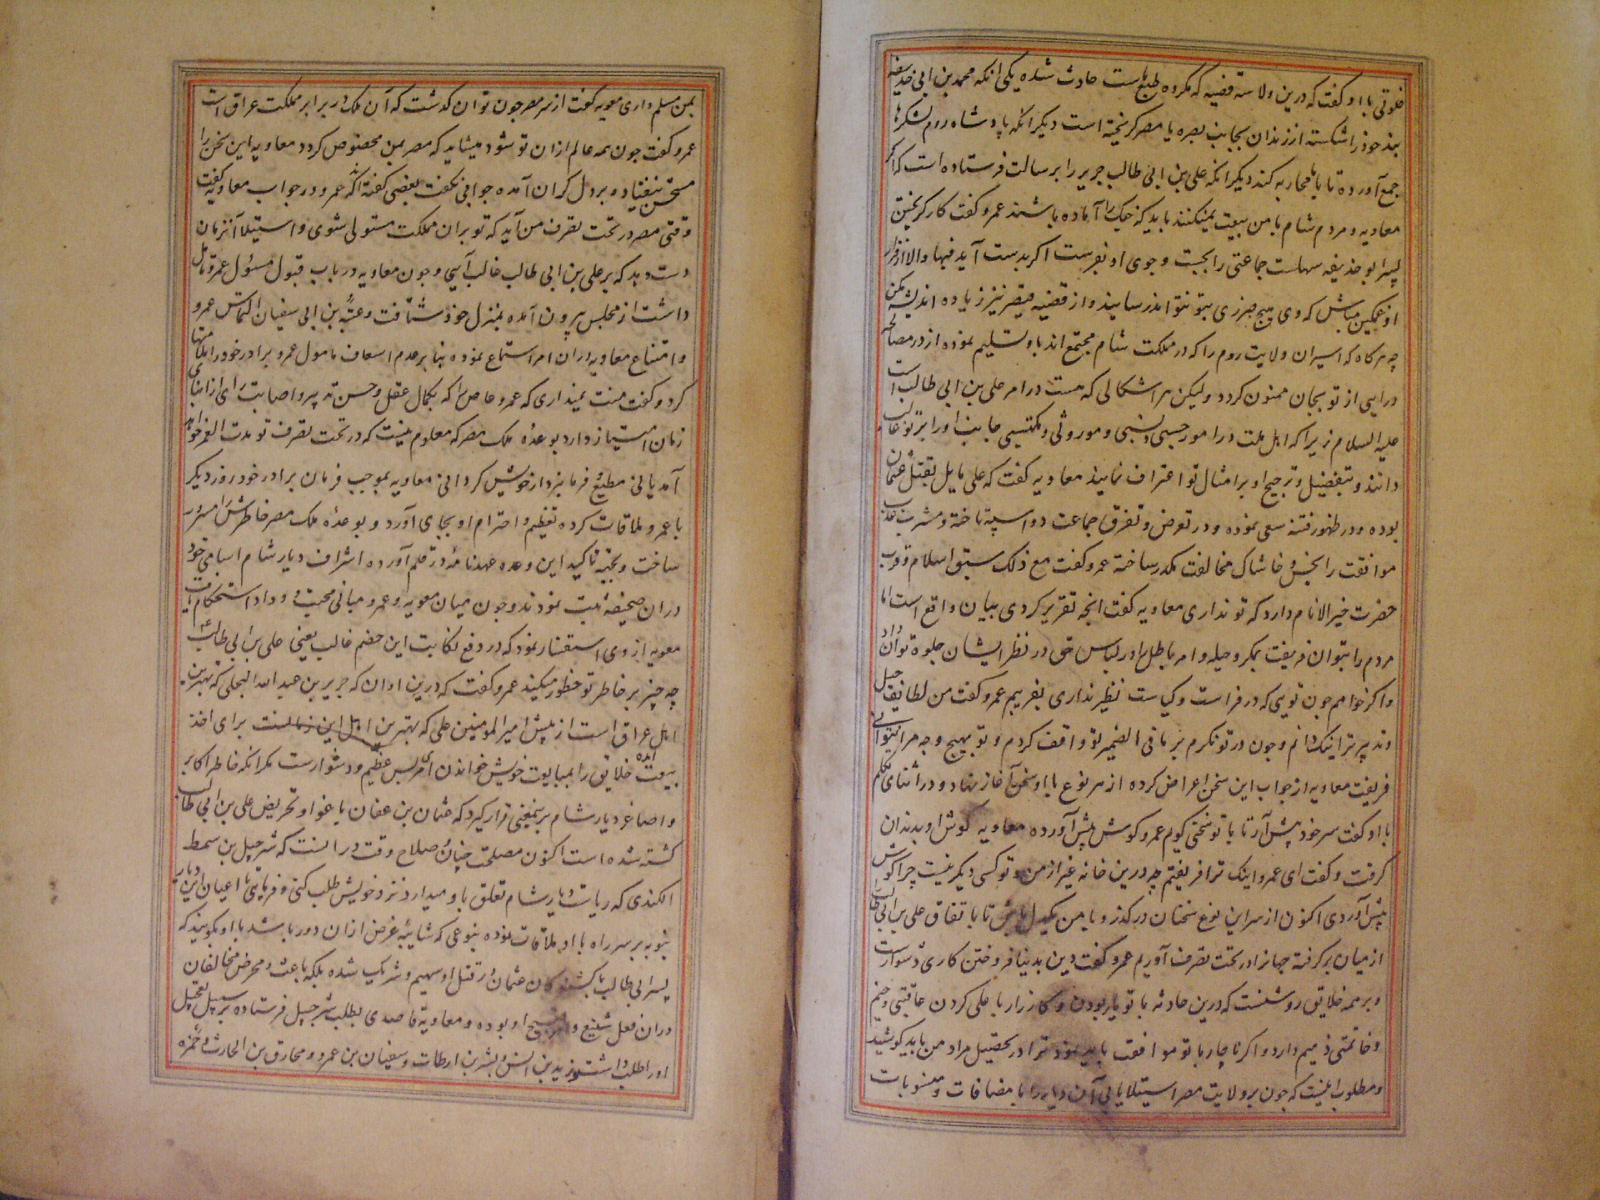 خلوتی با او گفت که درین ولا سه قضیه که مکروه طبع ماست حادث شده یکی انکه محمد بن ابی حذیفه
بند خود را شکسته از زندان بجانب بصره یا مصر کریخته است دیکر انکه پادشاه روم لشکرها
جمع آورده تا با ما محاربه کند دیکر انکه علی بن ابی طالب جریر را برسالت فرستاده است که اکر
معاویه و مردم شام با من بیعت نمیکنند باید که جنک را آماده باشند عمرو کفت کار کریختن
پسر ابو حذیفه سهلست جماعتی را بجست و جوی او بفرست اکر بدست آید فبها والا از فرار
او غمکین مباش که وی هیچ ضرری بتو نتواند رسانید و از قضیه قیصر نیز زیاده اندیشه مکن
چه هرکاه که اسیران ولایت روم را که در مملکت شام مجتمع اند باو تسلیم نموده از در مصالحه
درایی از تو بجان ممنون کردد ولیکن هر اشکالی که هست در امر علی بن ابی طالب است
علیه السلام زیرا که اهل ملت در امور حسبی و نسبی و موروثی و مکتسبی جانب او را بر تو غالب
دانند و بتفضیل و ترجیح او بر امثال تو اعتراف نمایند معاویه کفت که علی مایل بقتل عثمان
بوده و در ظهور فتنه سعی نموده و در تعرض و تفرق جماعت دو اسپه تاخته و مشرب عذب
موافقت را بخس و خاشاک مخالفت مکدر ساخته عمرو کفت مع ذلک سبق اسلام و قرب
حضرت خیر الانام دارد که تو نداری معاویه کفت انچه تقریر کردی بیان واقع است اما
مردم را بتوان فریفت بمکر و حیله و امر باطل را در لباس حق در نظر ایشان جلوه توان داد
و اکر خواهم چون تویی که در فراست و کیاست نظیر نداری بفریبم عمرو کفت من لطایف حیل
و تدبیر ترا نیک دانم و چون در تو نکرم بر مافی الضمیر تو واقف کردم و تو بهیچ وجه مرا نتوانی
فریفت معاویه از جواب این سخن اعراض کرده از هر نوع با او سخن آغاز نهاد و در اثنای تکلم
با او کفت سر خود پیش آر تا با تو سخنی کویم عمرو کوش پیش آورده معاویه کوش او بدندان
کرفت و کفت ای عمرو اینک ترا فریفتم چه درین خانه غیر از من و تو کسی دیکر نیست چرا کوش
پیش آوردی اکنون از سر این نوع سخنان در کذر و با من یکدل باش تا با تفاق علی بن ابی طالب
از میان بر کرفته جهانرا در تحت تصرف آوریم عمرو کفت دین بدنیا فروختن کاری دشوارست
و بر همه خلایق روشنست که درین حادثه با تو یار بودن و کارزار با علی کردن عاقبتی وخیم
و خاتمتی ذمیم دارد و اکر ناچار با تو موافقت باید نمود ترا در تحصیل مراد من باید کوشید
و مطلوب اینست که چون بر ولایت مصر استیلا یابی آن دیار را با مضافات و منسوبات
بمن مسلم داری معویه کفت از سر مصر چون توان کذشت که آن ملک در برابر مملکت عراق است
عمرو کفت چون همه عالم ازان تو شود میشاید که مصر بمن مخصوص کردد معاویه این سخن را
مستحسن نیفتاد و بر دل کران آمده جوابی نکفت بعضی کفته اند که عمرو در جواب معاویه کفت
وقتی مصر در تحت تصرف من آید که تو بران مملکت مستولی شوی و استیلا آنزمان
دست دهد که بر علی بن ابی طالب غالب آیی و چون معاویه در باب قبول مسؤل عمرو تامل
داشت از مجلس بیرون آمده بمنزل خود شتافت و عتبه بن ابی سفیان التماس عمرو
و امتناع معاویه دران امر استماع نموده بنا بر عدم اسعاف مامول عمرو برادر خود را ملامتها
کرد و کفت منت نمیداری که عمرو عاص را که بکمال عقل و حسن تدبیر و اصابت رای از ابنای
زمان امتیاز دارد بوعدهٔ ملک مصر که معلوم نیست که در تحت تصرف تو مدت العمر خواهد
آمد یا نی مطیع و فرمانبردار خویش کردانی معاویه بموجب فرمان برادر خود روز دیکر
با عمرو ملاقات کرده تعظیم و احترام او بجای آورد و بوعدهٔ ملک مصر خاطرش را مسرور
ساخت و بجهه تاکید این وعده عهدنامهٔ در قلم آورده اشراف دیار شام اسامی خود
دران صحیفه ثبت نمودند و چون میان معویه و عمرو مبانی محبت و وداد استحکام یافت
معویه از وی استفسار نمود که در دفع نکایت این خصم غالب یعنی علی بن ابی طالب
چه چیز بر خاطر تو خطور میکند عمرو کفت که درین اوان که جریر بن عبد الله البجلی که بهترین
اهل عراق است از پیش امیر المومنین علی که بهترین اهل این زمانست برای اخذ
بیعت آمده خلایق را بمبایعت خویش خواندن امری بس عظیم و دشوارست مکر انکه خاطر اکابر
و اصاغر دیار شام برین معنی قرار کیرد که عثمان بن عفان باغوا و تحریض علی بن ابی طالب
کشته شده است اکنون مصلحت چنان و صلاح وقت درانست که شرحبیل بن سمط
الکندی که ریاست دیار شام تعلق باو میدارد نزد خویش طلب کنی و فرمایی تا اعیان این دیار
نوبه نوبه بر سر راه با او ملاقات نموده بنوعی که شایبه غرض ازان دور باشد با او بکویند که
پسر ابی طالب با کشندکان عثمان در قتل او سهیم و شریک شده بلکه باعث و محرض مخالفان
دران فعل شنیع و امر قبیح او بوده و معاویه قاصدی بطلب شرحبیل فرستاده بر سبیل تعجیل
او را طلب داشت و یزید بن انس و بشر بن ارطات و سفیان بن عمرو و مخارق بن الحارث و حمزه